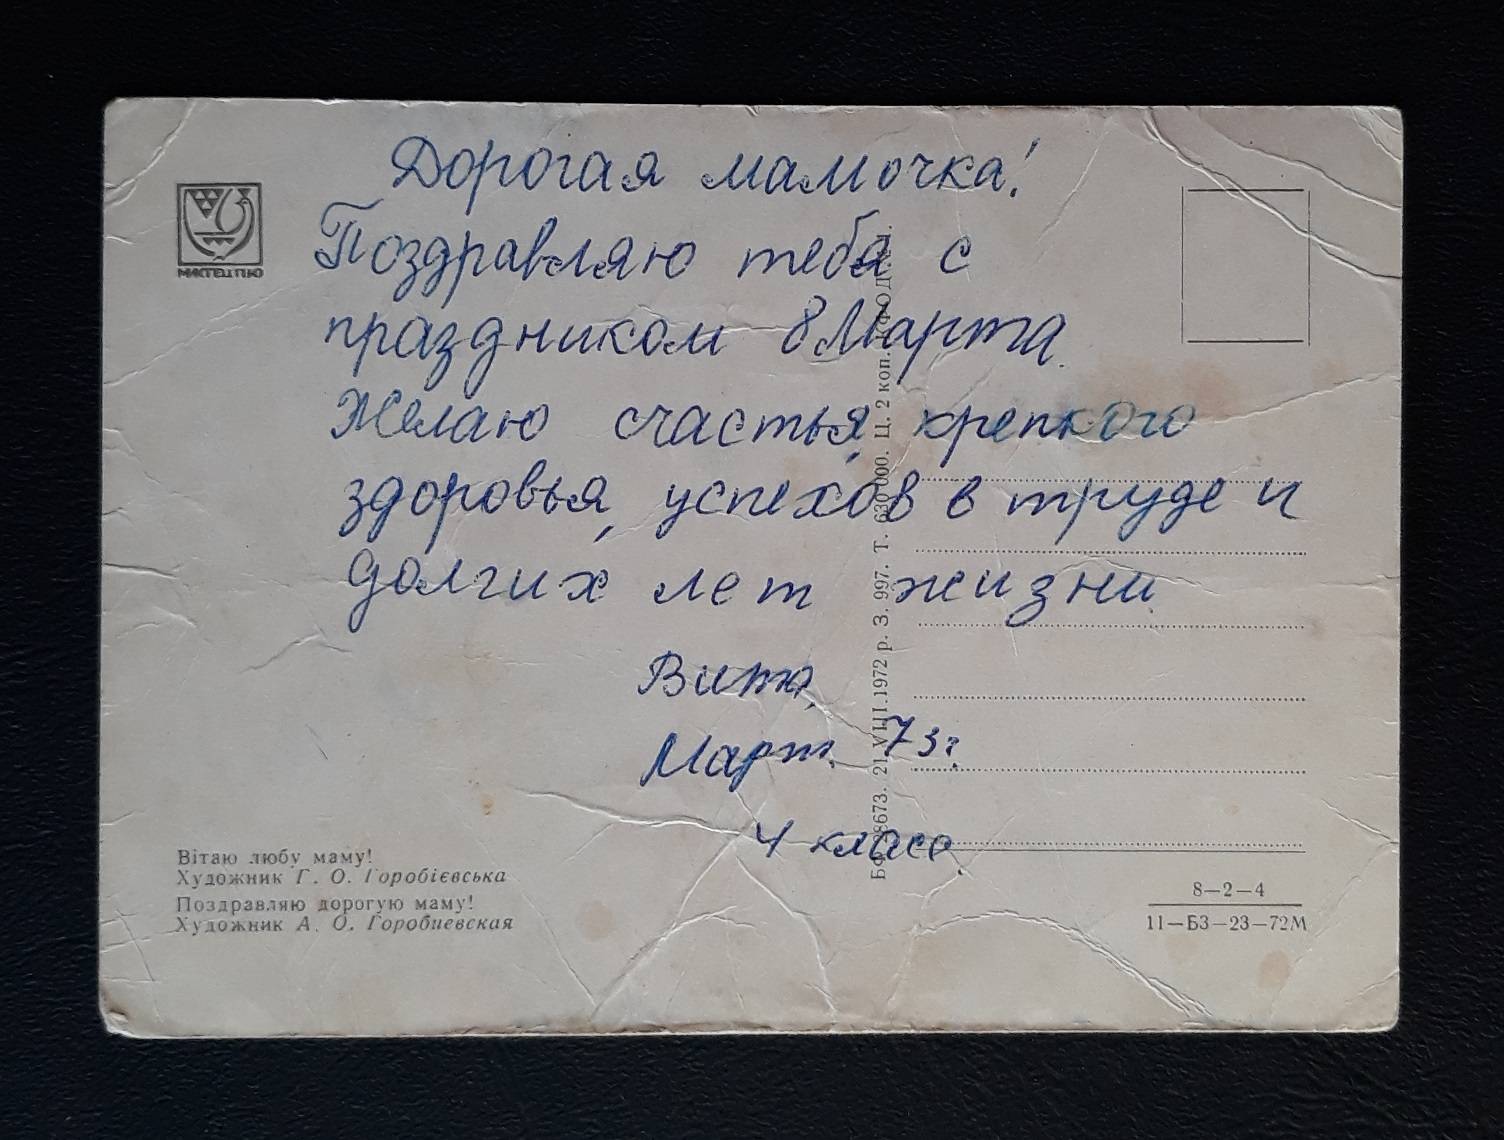 Дорогая мамочка!
Поздравляю тебя с
праздником 8 Марта.
Желаю счастья, крепкого
здоровья, успехов в труде и
долгих лет жизни.
Витя,
Март. 73г.
4 класс.
МИСТЕЦТВО
Вітаю любу маму!
Художник Г. О. Горобієвська
Поздравляю дорогую маму!
Художник А. О. Горобиевская
8673. 21.VIII.1972 р. З. 997. Т. 630 000. Ц. 2 коп.
8—2—4
11—БЗ—23—72М